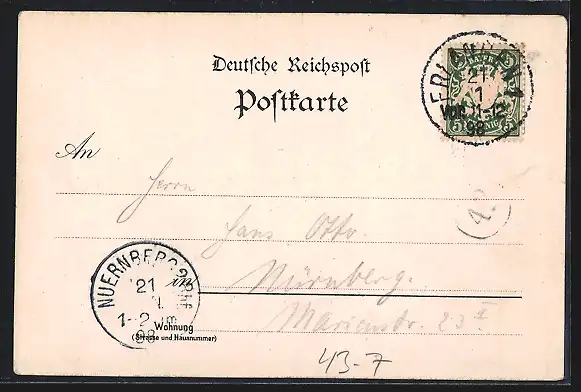 Deutsche Reichspost
Postkarte
BAYERN
5 5
PFENNIG
ERLANGEN 1
21
1
VOR. 11-12
98
An
Herrn
Hans Otto.
in Nürnberg.
Marienstr. 23 I
Wohnung
(Strasse und Hausnummer)
NUERNBERG 2 Bhf
21
1.
1-2
98
2
43-7